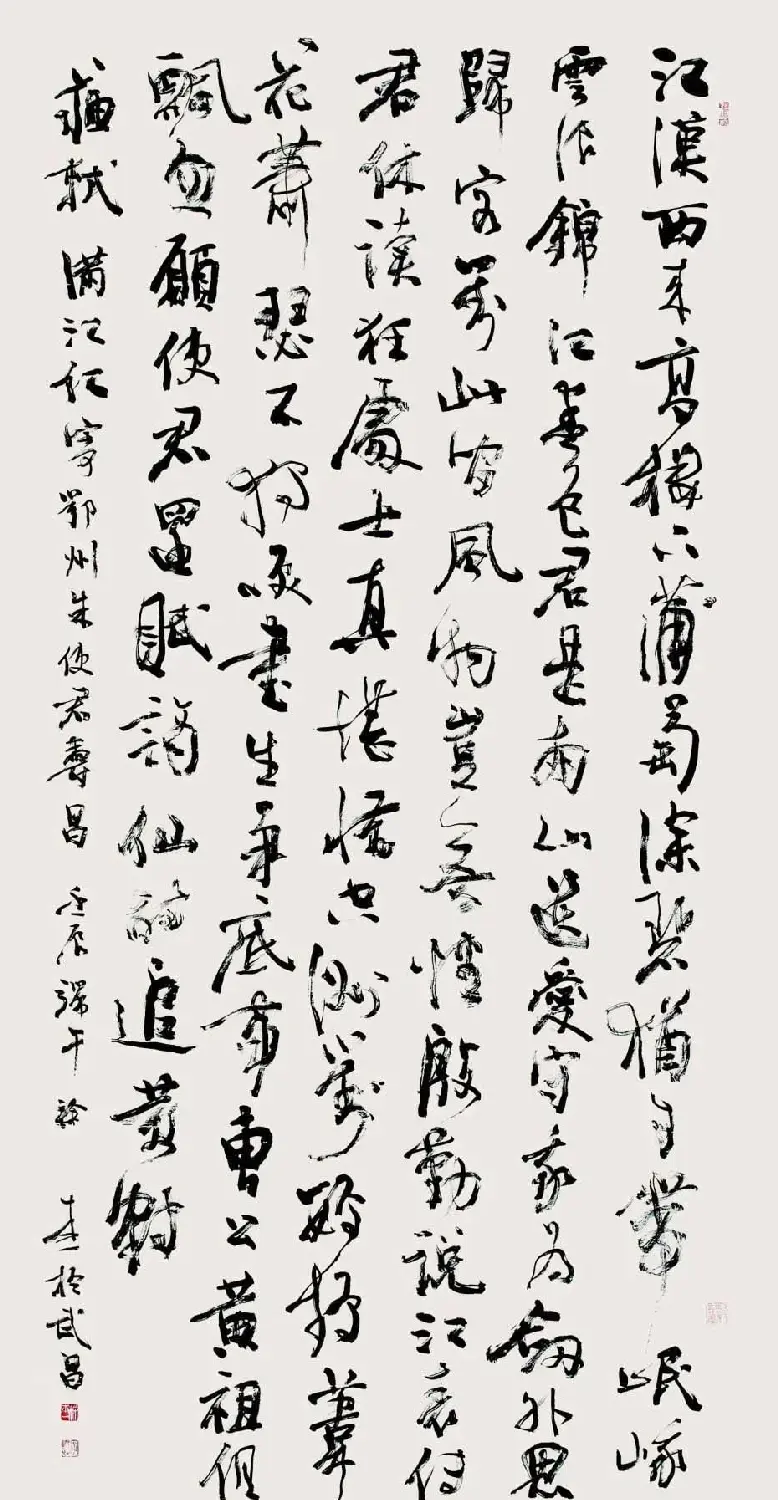 江漢西來高樓下蒲萄深碧猶自帶岷峨
雲浪錦江春色君是南山遺愛守我為劍外思
歸客對此間風物豈無情殷勤說江表傳
君休讀狂處士真堪惜空洲對鸚鵡葦
花蕭瑟不獨笑書生爭底事曹公黃祖俱
飄忽願使君還賦謫仙詩追黃鶴
蘇軾滿江紅寄鄂州朱使君壽昌 壬辰端午 於武昌